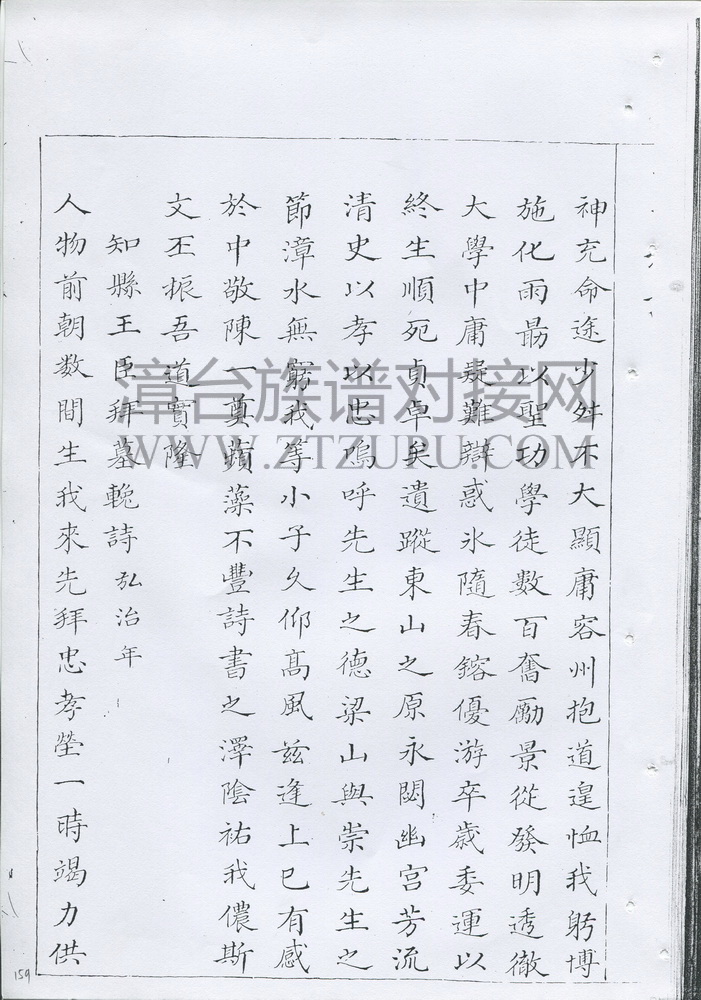 神充命途少舛不大顯庸容州抱道遑恤我躬博
施化雨勗以聖功學徒數百奮勵景從發明透徹
大學中庸疑難辯惑氷隨春鎔優游卒歲委運以
終生順死貞卓矣遺蹤東山之原永閟幽宮芳流
清史以孝以忠嗚呼先生之德梁山與崇先生之
節漳水無窮我等小子久仰髙風兹逢上巳有感
於中敬陳一奠蘋藻不豐詩書之澤陰祐我儂斯
文丕振吾道實隆
知縣王臣拜墓輓詩 弘治年
人物前朝数間生我來先拜忠孝塋一時竭力供
159
漳台族谱对接网
WWW.ZTZUPU.COM